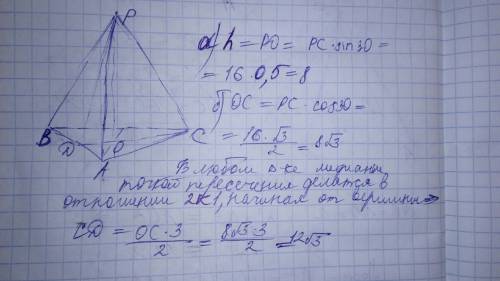 P
а) h = PO = PC · sin30 =
= 16 · 0,5 = 8
б) OC = PC · cos30 =
= 16 · √3 / 2 = 8√3
B
D
O
C
A
В любом Δ-ке медианы
точкой пересечения делятся в
отношении 2к1, начиная от вершины ⇒
CD = OC · 3 / 2 = 8√3 · 3 / 2 = 12√3